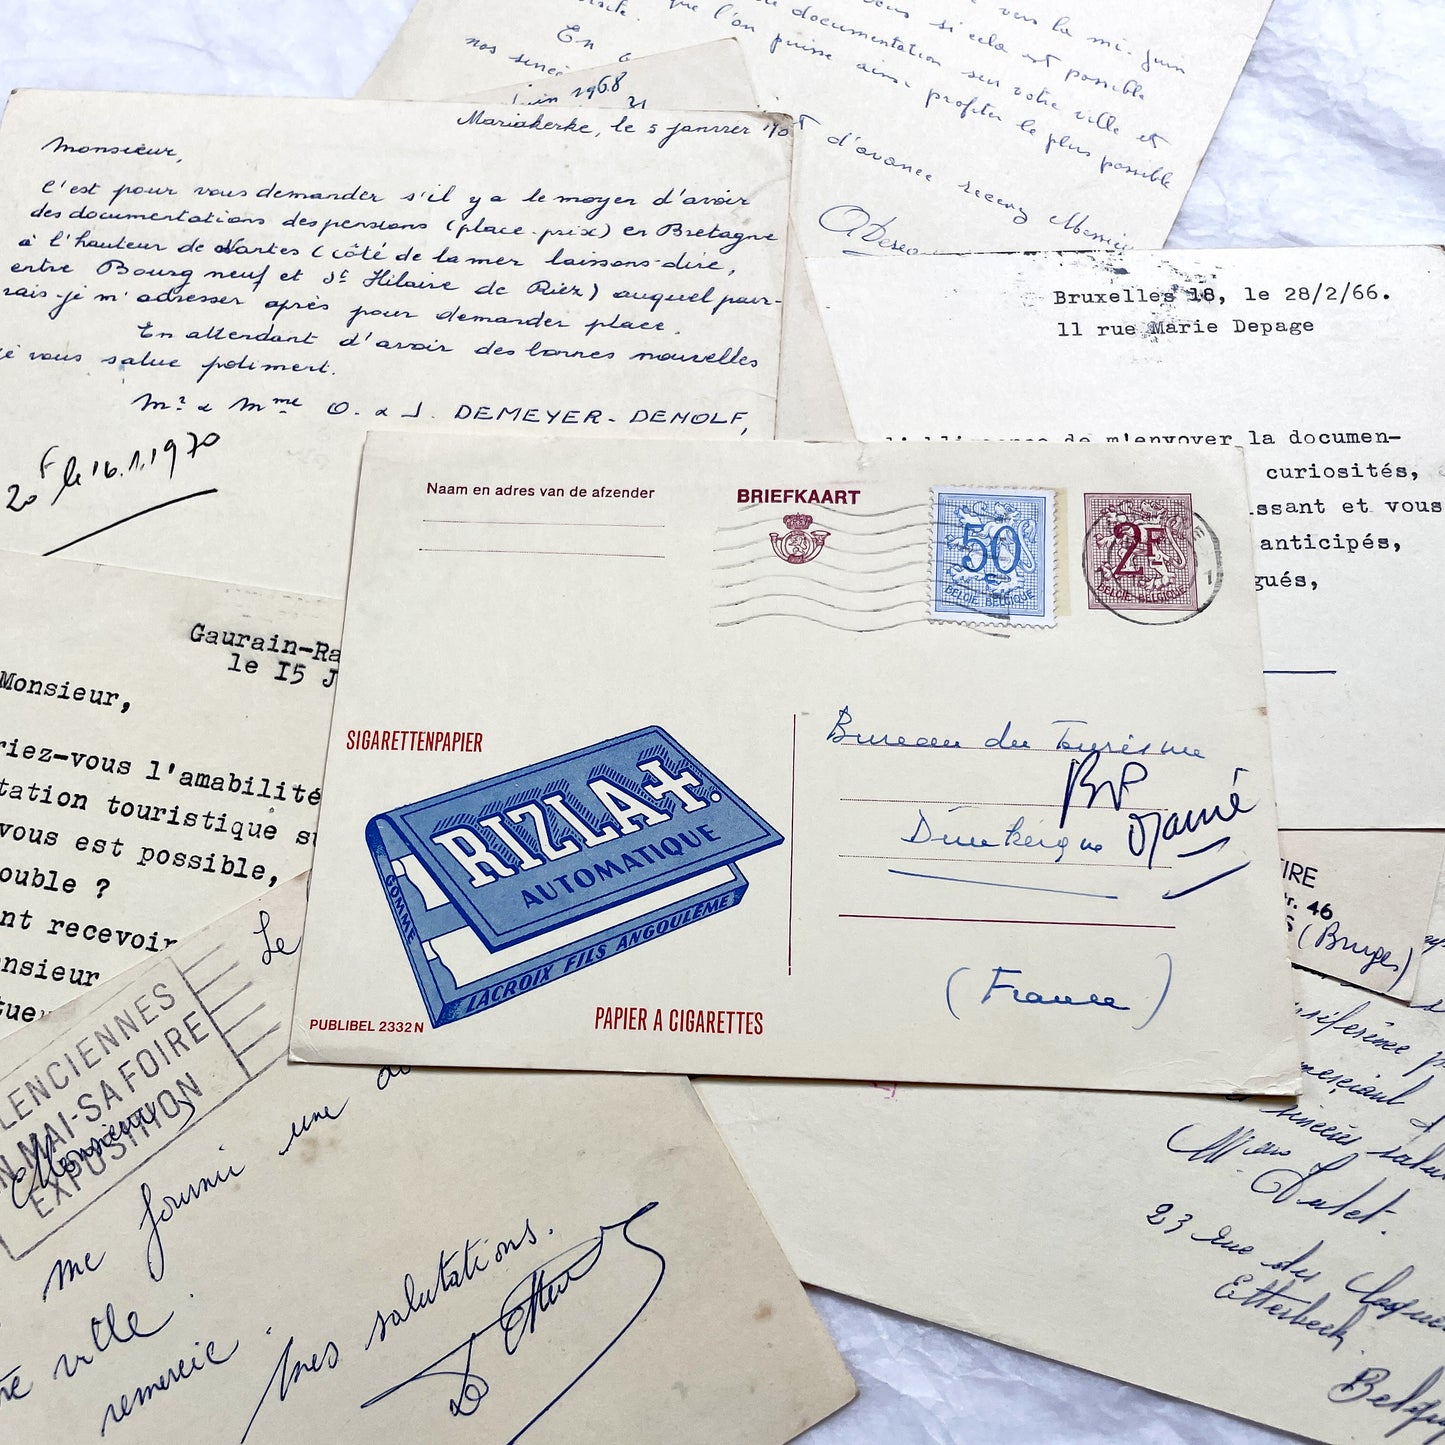 vers la mi-juin
si cela est possible
documentation sur votre ville et
que l'on puisse ainsi profiter le plus possible
d'avance recevez Messieurs
En
nos sincè
juin 1968
Mariakerke, le 5 janvier '70
Monsieur,
C'est pour vous demander s'il y a le moyen d'avoir
des documentations des pensions (place-prix) en Bretagne
à l'hauteur de Nantes (côté de la mer laissons-dire,
entre Bourg neuf et St Hilaire de Riez) auquel pour-
rais-je m'adresser après pour demander place.
En attendant d'avoir des bonnes nouvelles
je vous salue poliment.
Mr & Mme O. & J. DEMEYER-DENOLF,
20 F le 16.1.1970
Bruxelles 18, le 28/2/66.
11 rue Marie Depage
l'obligeance de m'envoyer la documen-
curiosités,
issant et vous
anticipés,
gués,
Naam en adres van de afzender
BRIEFKAART
50 c
BELGIE-BELGIQUE
2F
BELGIE-BELGIQUE
Gaurain-Ra
le I5 J
Monsieur,
riez-vous l'amabilité
tation touristique su
vous est possible,
ouble ?
nt recevoir
nsieur
tue
SIGARETTENPAPIER
RIZLA+.
AUTOMATIQUE
GOMME
LACROIX FILS ANGOULÊME
PUBLIBEL 2332 N
PAPIER A CIGARETTES
Bureau du Tourisme
BP
Dunkerque
(France)
IRE
tr. 46
S (Bruges)
Le
LENCIENNES
N MAI-SA FOIRE
EXPOSITION
Monsieur
me fournir une
ville
remercie.
Mes salutations.
préférence p
merciant d
sincères salu
Mme Dulet.
23 rue du
Etterbeek.
Belgique